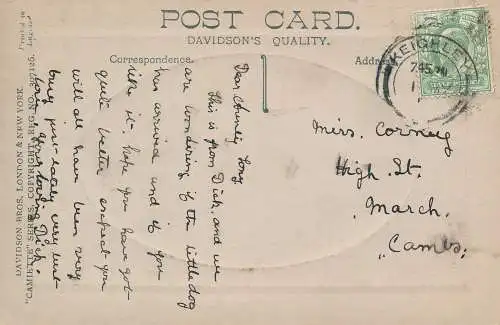 POST CARD.
DAVIDSON'S QUALITY.
Correspondence.
Address
KEIGHLEY
7.45 PM
Dear Chumly Tony
This is from Dick. and we
are wondering if the little dog
has arrived and if you
like it. hope you have got
quite better expect you
will all have been very
busy just lately very best
love
Your loving Dick.
Miss. Corney
High St.
March.
Cambs.
"CAMELETTE" SERIES. COPYRIGHT
DAVIDSON BROS. LONDON & NEW YORK